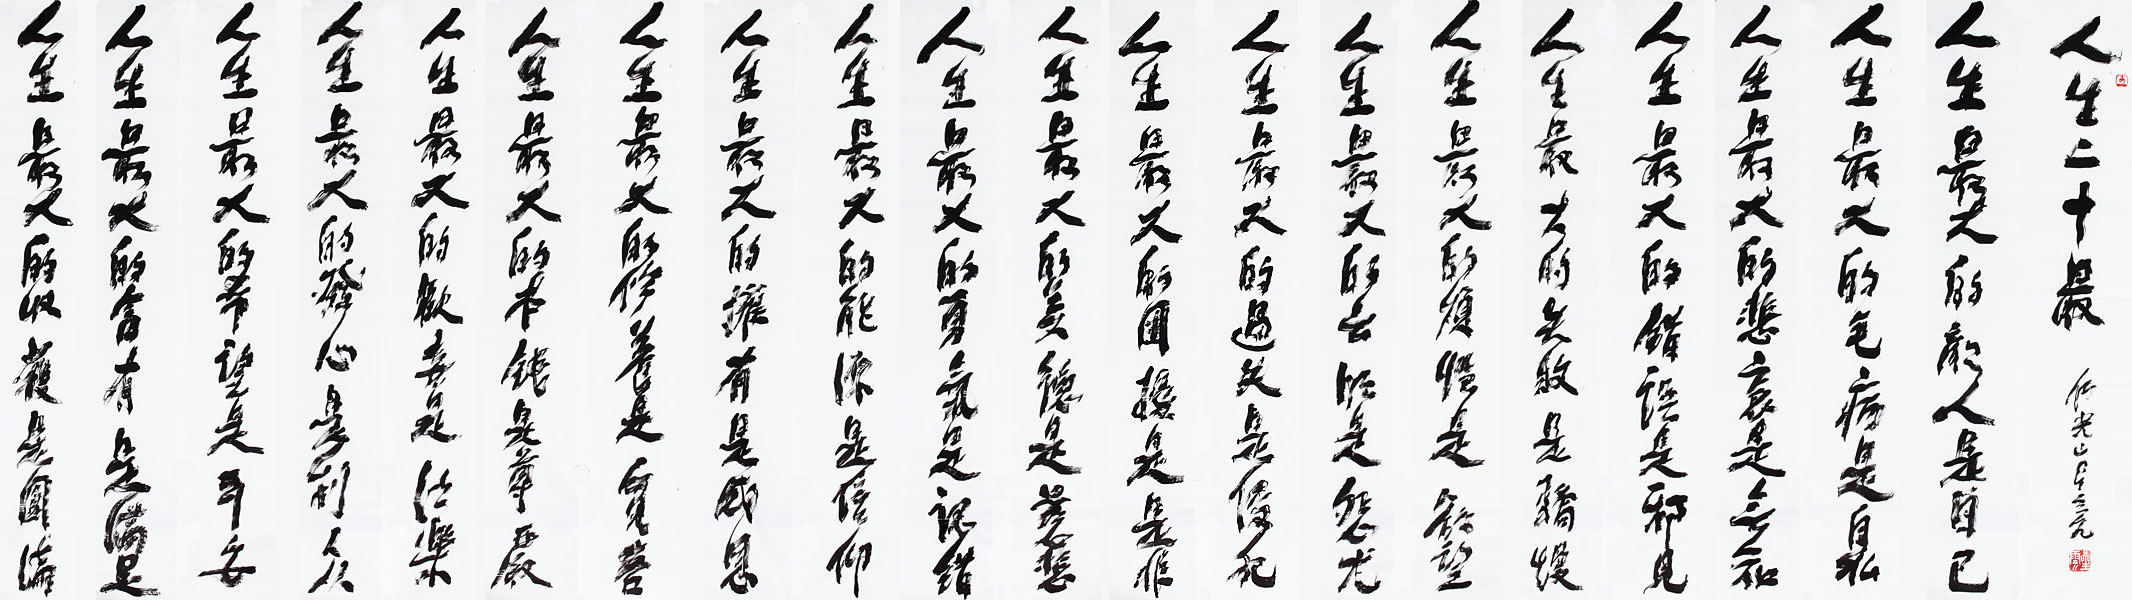 人生二十最
佛光山星雲
人生最大的敵人是自己
人生最大的毛病是自私
人生最大的悲哀是無知
人生最大的錯誤是邪見
人生最大的失敗是驕慢
人生最大的煩惱是欲望
人生最大的无明是怨尤
人生最大的過失是侵犯
人生最大的困擾是是非
人生最大的美德是慈悲
人生最大的勇氣是認錯
人生最大的能源是信仰
人生最大的擁有是感恩
人生最大的修養是寬容
人生最大的本錢是尊嚴
人生最大的歡喜是法樂
人生最大的發心是利眾
人生最大的希望是平安
人生最大的富有是滿足
人生最大的收穫是圓滿